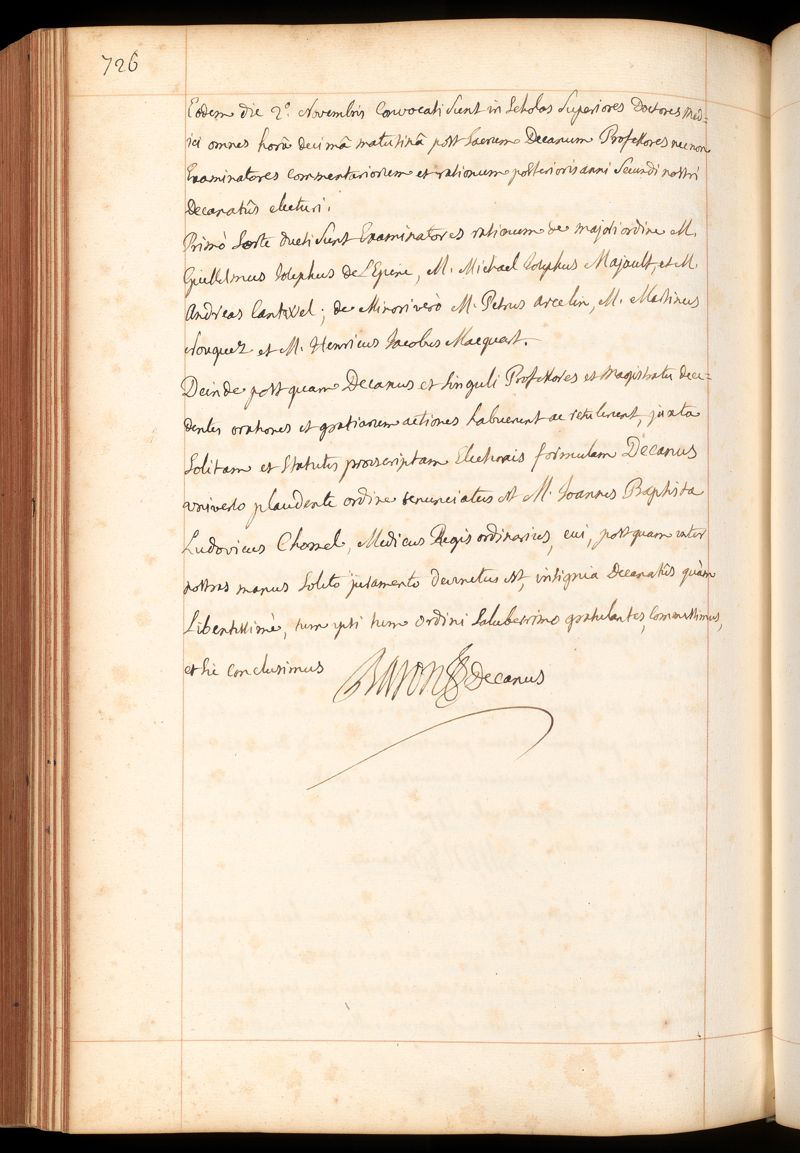 726
Eodem die 2°. Novembris Convocati Sunt in Scholas Superiores Doctores med=
ici omnes horâ decimâ matutinâ post Sacrum Decanum Professores nec non
Examinatores commentariorum et rationum posterioris anni Secundi nostri
Decanatûs electuri.
Primò Sorte ducti Sunt Examinatores rationum de majori ordine M.
Guillelmus Josephus de L'Epine, M. Michael Josephus Majault, et M.
Andreas Cantwel; de Minori verò M. Petrus arcelin, M. Martinus
Nouguez et M. Henricus Jacobus Macquart.
Deinde postquam Decanus et Singuli Professores et Magistratu dece=
dentes orationes et gratiarum actiones habuerunt ac retulerunt, juxta
Solitam et Statutis proescriptam Electionis formulam Decanus
universo plaudente ordine renunciatus est M. Joannes Baptista
Ludovicus Chomel, Medicus Regis ordinarius, cui, postquam inter
nostras manus Solito juramento devinctus est, insignia Decanatûs quàm
Libentissimè, tum ipsi tum ordini Saluberrimo gratulantes, Commisimus,
et Sic conclusimus BARON Decanus